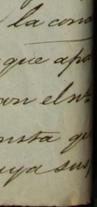 la cono
que apo
con el no
onsta qu
uya sus